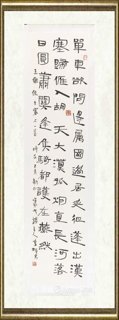 單車欲問邊屬國過居延征蓬出漢
塞歸雁入胡天大漠孤烟直長河落
日圓蕭關逢候騎都護在燕然
王維使至塞上